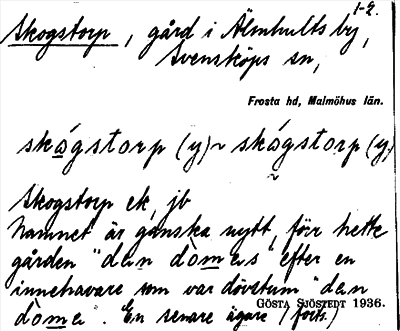 1-2.
Skogstorp, gård i Älmhults by,
Svensköps sn,
Frosta hd, Malmöhus län.
skågstorp (y) ~ skågstorp (y)
Skogstorp ek, jb
Namnet är ganska nytt, förr hette
gården "dan dömes" efter en
innehavare som var dövstum "dan
döme". En senare ägare (forts.)
GÖSTA SJÖSTEDT 1936.